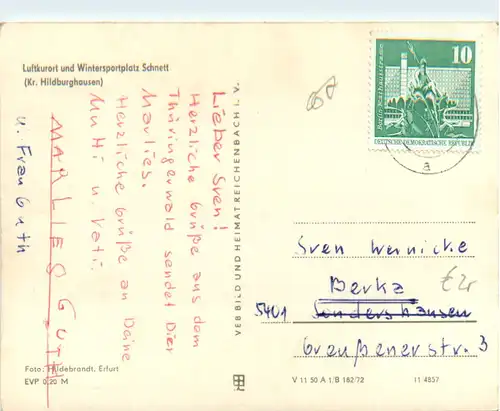 Luftkurort und Wintersportplatz Schnett
(Kr. Hildburghausen)
Lieber Sven!
Herzliche Grüße aus dem
Thüringerwald sendet Dier
Marlies.
Herzliche Grüße an Deine
Mutti u. Vati.
MARLIES GUTH
u. Frau Guth
Foto: Hildebrandt, Erfurt
EVP 0,20 M
VEB BILD UND HEIMAT REICHENBACH i. V.
10
Berlin · Rathausstraße
DEUTSCHE DEMOKRATISCHE REPUBLIK
a
Sven Wernicke
Berka
5401 Sondershausen
Greußenerstr. 3
€2r
V 11 50 A 1/B 182/72
11 4857